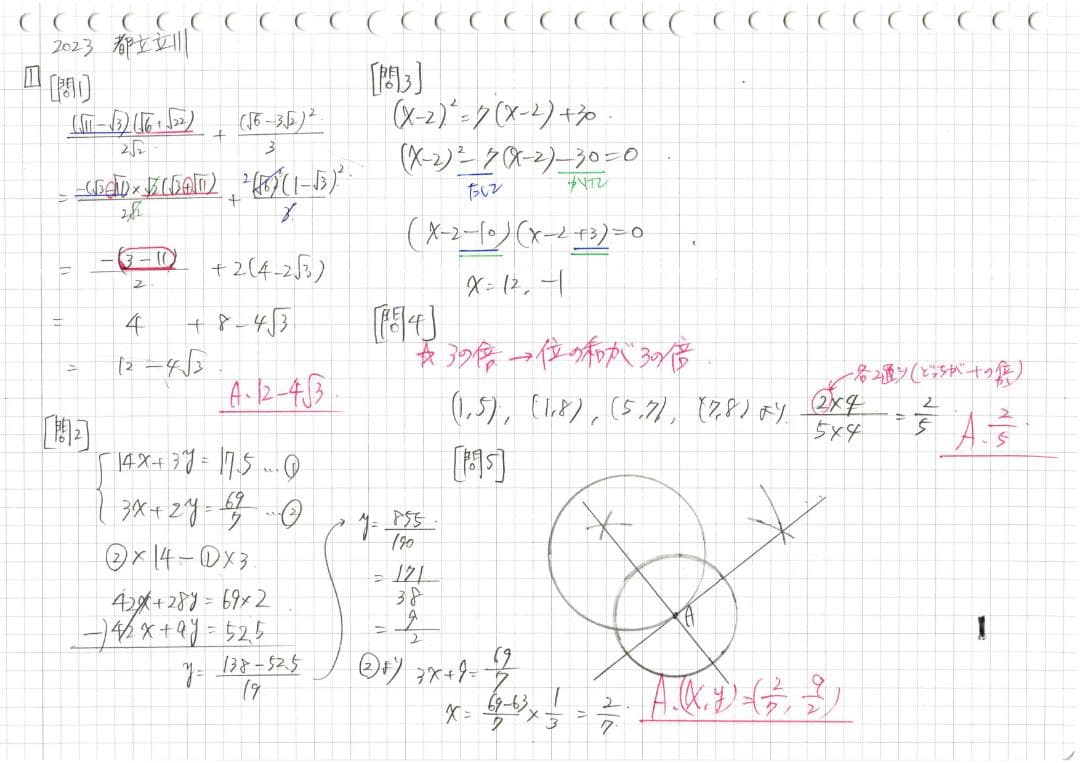 2023 都立立川
1
[問1]
(√11-√3)(√6+√22)/2√2 + (√6-3√2)²/3
= -(√3-√11)×√2(√3+√11)/2√2 + (√6)²(1-√3)²/3
= -(3-11)/2 + 2(4-2√3)
= 4 + 8-4√3
= 12-4√3
A. 12-4√3
[問2]
14x+3y=17.5 …①
3x+2y=69/7 …②
②×14-①×3
42x+28y=69×2
-)42x+9y=52.5
y=(138-52.5)/19
y=855/190
=171/38
=9/2
②より 3x+9=69/7
x=(69-63)/7×1/3=2/7
A.(x,y)=(2/7, 9/2)
[問3]
(x-2)²=7(x-2)+30
(x-2)²-7(x-2)-30=0
たして かけて
(x-2-10)(x-2+3)=0
x=12, -1
[問4]
☆3の倍→位の和が3の倍
各2通り(どっちが十の位か)
(1,5), (1,8), (5,7), (7,8) より 2×4/5×4 = 2/5
A. 2/5
[問5]
A
1